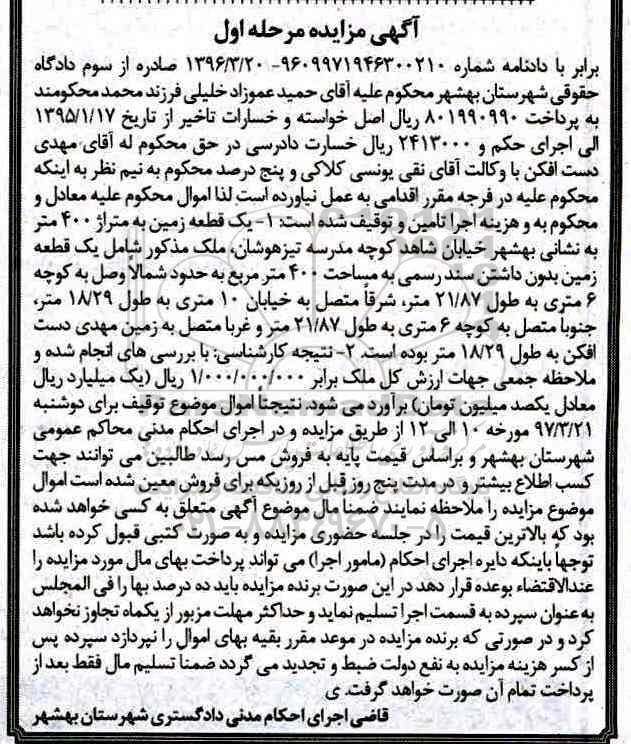 آگهی مزایده مرحله اول
برابر با دادنامه شماره ۹۶۰۹۹۷۱۹۴۶۳۰۰۲۱۰- ۱۳۹۶/۳/۲۰ صادره از سوم دادگاه
حقوقی شهرستان بهشهر محکوم علیه آقای حمید عموزاد خلیلی فرزند محمد محکومند
به پرداخت ۸۰۱۹۹۰۹۹۰ ریال اصل خواسته و خسارات تاخیر از تاریخ ۱۳۹۵/۱/۱۷
الی اجرای حکم و ۲۴۱۳۰۰۰ ریال خسارت دادرسی در حق محکوم له آقای مهدی
دست افکن با وکالت آقای نقی یونسی کلاکی و پنج درصد محکوم به نیم نظر به اینکه
محکوم علیه در فرجه مقرر اقدامی به عمل نیاورده است لذا اموال محکوم علیه معادل و
محکوم به و هزینه اجرا تامین و توقیف شده است: ۱- یک قطعه زمین به متراژ ۴۰۰ متر
به نشانی بهشهر خیابان شاهد کوچه مدرسه تیزهوشان، ملک مذکور شامل یک قطعه
زمین بدون داشتن سند رسمی به مساحت ۴۰۰ متر مربع به حدود شمالاً وصل به کوچه
۶ متری به طول ۲۱/۸۷ متر، شرقاً متصل به خیابان ۱۰ متری به طول ۱۸/۲۹ متر،
جنوباً متصل به کوچه ۶ متری به طول ۲۱/۸۷ متر و غربا متصل به زمین مهدی دست
افکن به طول ۱۸/۲۹ متر بوده است. ۲- نتیجه کارشناسی: با بررسی های انجام شده و
ملاحظه جمعی جهات ارزش کل ملک برابر ۱/۰۰۰/۰۰۰/۰۰۰ ریال (یک میلیارد ریال
معادل یکصد میلیون تومان) برآورد می شود. نتیجتاً اموال موضوع توقیف برای دوشنبه
۹۷/۳/۲۱ مورخه ۱۰ الی ۱۲ از طریق مزایده و در اجرای احکام مدنی محاکم عمومی
شهرستان بهشهر و براساس قیمت پایه به فروش می رسد طالبین می توانند جهت
کسب اطلاع بیشتر و در مدت پنج روز قبل از روزیکه برای فروش معین شده است اموال
موضوع مزایده را ملاحظه نمایند ضمناً مال موضوع آگهی متعلق به کسی خواهد شده
بود که بالاترین قیمت را در جلسه حضوری مزایده و به صورت کتبی قبول کرده باشد
توجهاً باینکه دایره اجرای احکام (مامور اجرا) می تواند پرداخت بهای مال مورد مزایده را
عندالاقتضاء بوعده قرار دهد در این صورت برنده مزایده باید ده درصد بها را فی المجلس
به عنوان سپرده به قسمت اجرا تسلیم نماید و حداکثر مهلت مزبور از یکماه تجاوز نخواهد
کرد و در صورتی که برنده مزایده در موعد مقرر بقیه بهای اموال را نپردازد سپرده پس
از کسر هزینه مزایده به نفع دولت ضبط و تجدید می گردد ضمنا تسلیم مال فقط بعد از
پرداخت تمام آن صورت خواهد گرفت. ی
قاضی اجرای احکام مدنی دادگستری شهرستان بهشهر